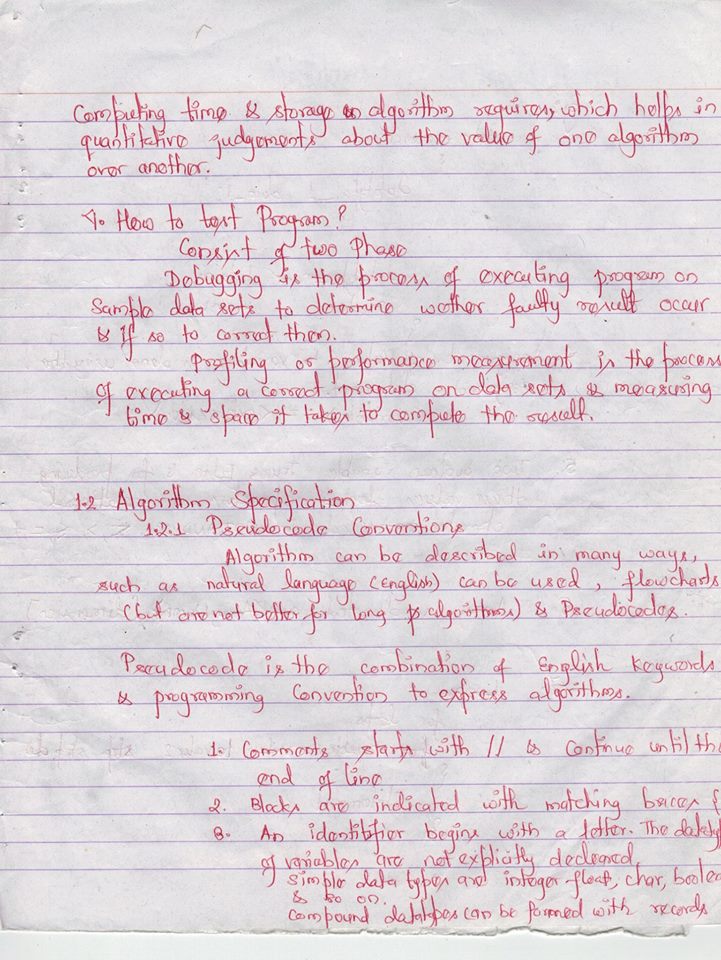 Computing time & storage an algorithm requires, which helps in
quantitative judgements about the value of one algorithm
over another.
How to test Program?
Consist of two Phase
Debugging is the process of executing program on
Sample data sets to determine wether faulty result occur
& if so to correct them.
Profiling or performance measurement is the process
of executing a correct program on data sets & measuring
time & space it takes to compute the result.
1.2 Algorithm Specification
1.2.1 Pseudocode Conventions
Algorithm can be described in many ways,
such as natural language (english) can be used, flowcharts
(but are not better for long algorithms) & Pseudocodes.
Pseudocode is the combination of English Keywords
& programming Convention to express algorithms.
1. Comments starts with // & continue until the
end of line
2. Blocks are indicated with matching braces
3. An identitifier begins with a letter. The dataty
of variables are not explicitly decleared.
simple data types are integer float, char, boolea
& so on.
Compound datatypes can be formed with records